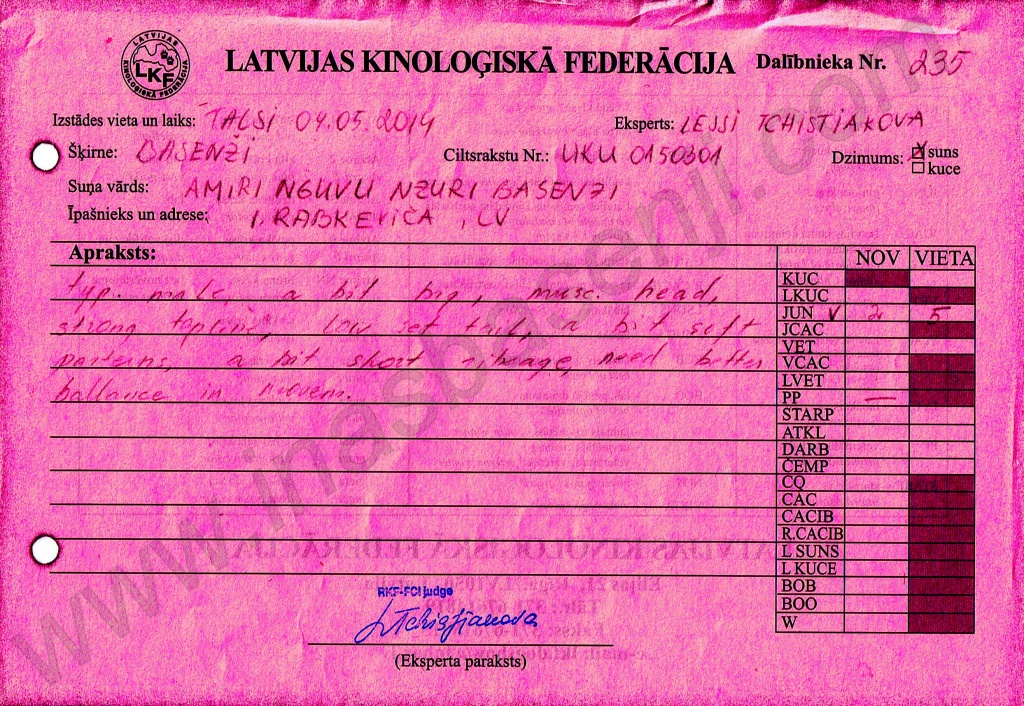 LATVIJAS KINOLOĢISKĀ FEDERĀCIJA
LKF
LATVIJAS KINOLOĢISKĀ FEDERĀCIJA Dalībnieka Nr. 235
Izstādes vieta un laiks: TALSI 04.05.2014 Eksperts: LESSI TCHISTJAKOVA
Šķirne: BASENŽI Ciltsrakstu Nr.: UKU 0150301 Dzimums: suns
kuce
Suņa vārds: AMIRI NGUVU NZURI BASENZI
Īpašnieks un adrese: I. RADKEVIČA, LV
Apraksts: NOV VIETA
typ. male, a bit big, musc. head,
strong topline, low set tail, a bit soft
pasterns, a bit short ribcage, need better
ballance in movem.
KUC
LKUC
JUN V 2 5
JCAC
VET
VCAC
LVET
PP —
STARP
ATKL
DARB
ČEMP
CQ
CAC
CACIB
R.CACIB
L SUNS
L KUCE
BOB
BOO
W
RKF-FCI judge
LTchistjanova
(Eksperta paraksts)
www.inasbasenji.com